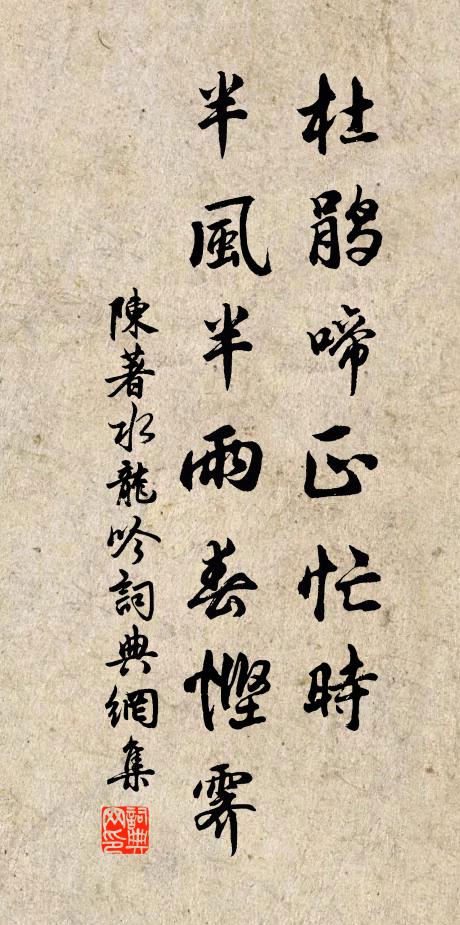 杜鹃啼正忙時
半風半雨春慳霽
陳著水龍吟詞典網集
詞典网印